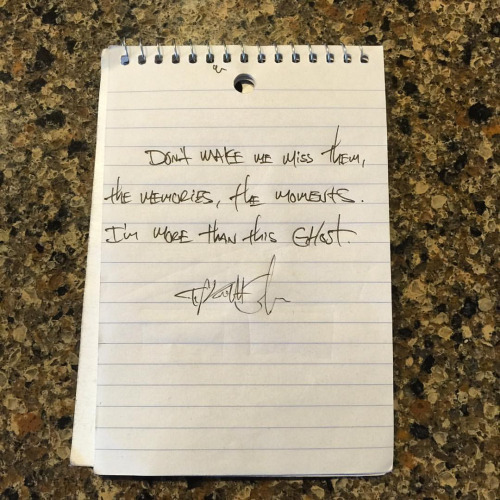 Don't make me miss them,
the memories, the moments.
I'm more than this Ghost.